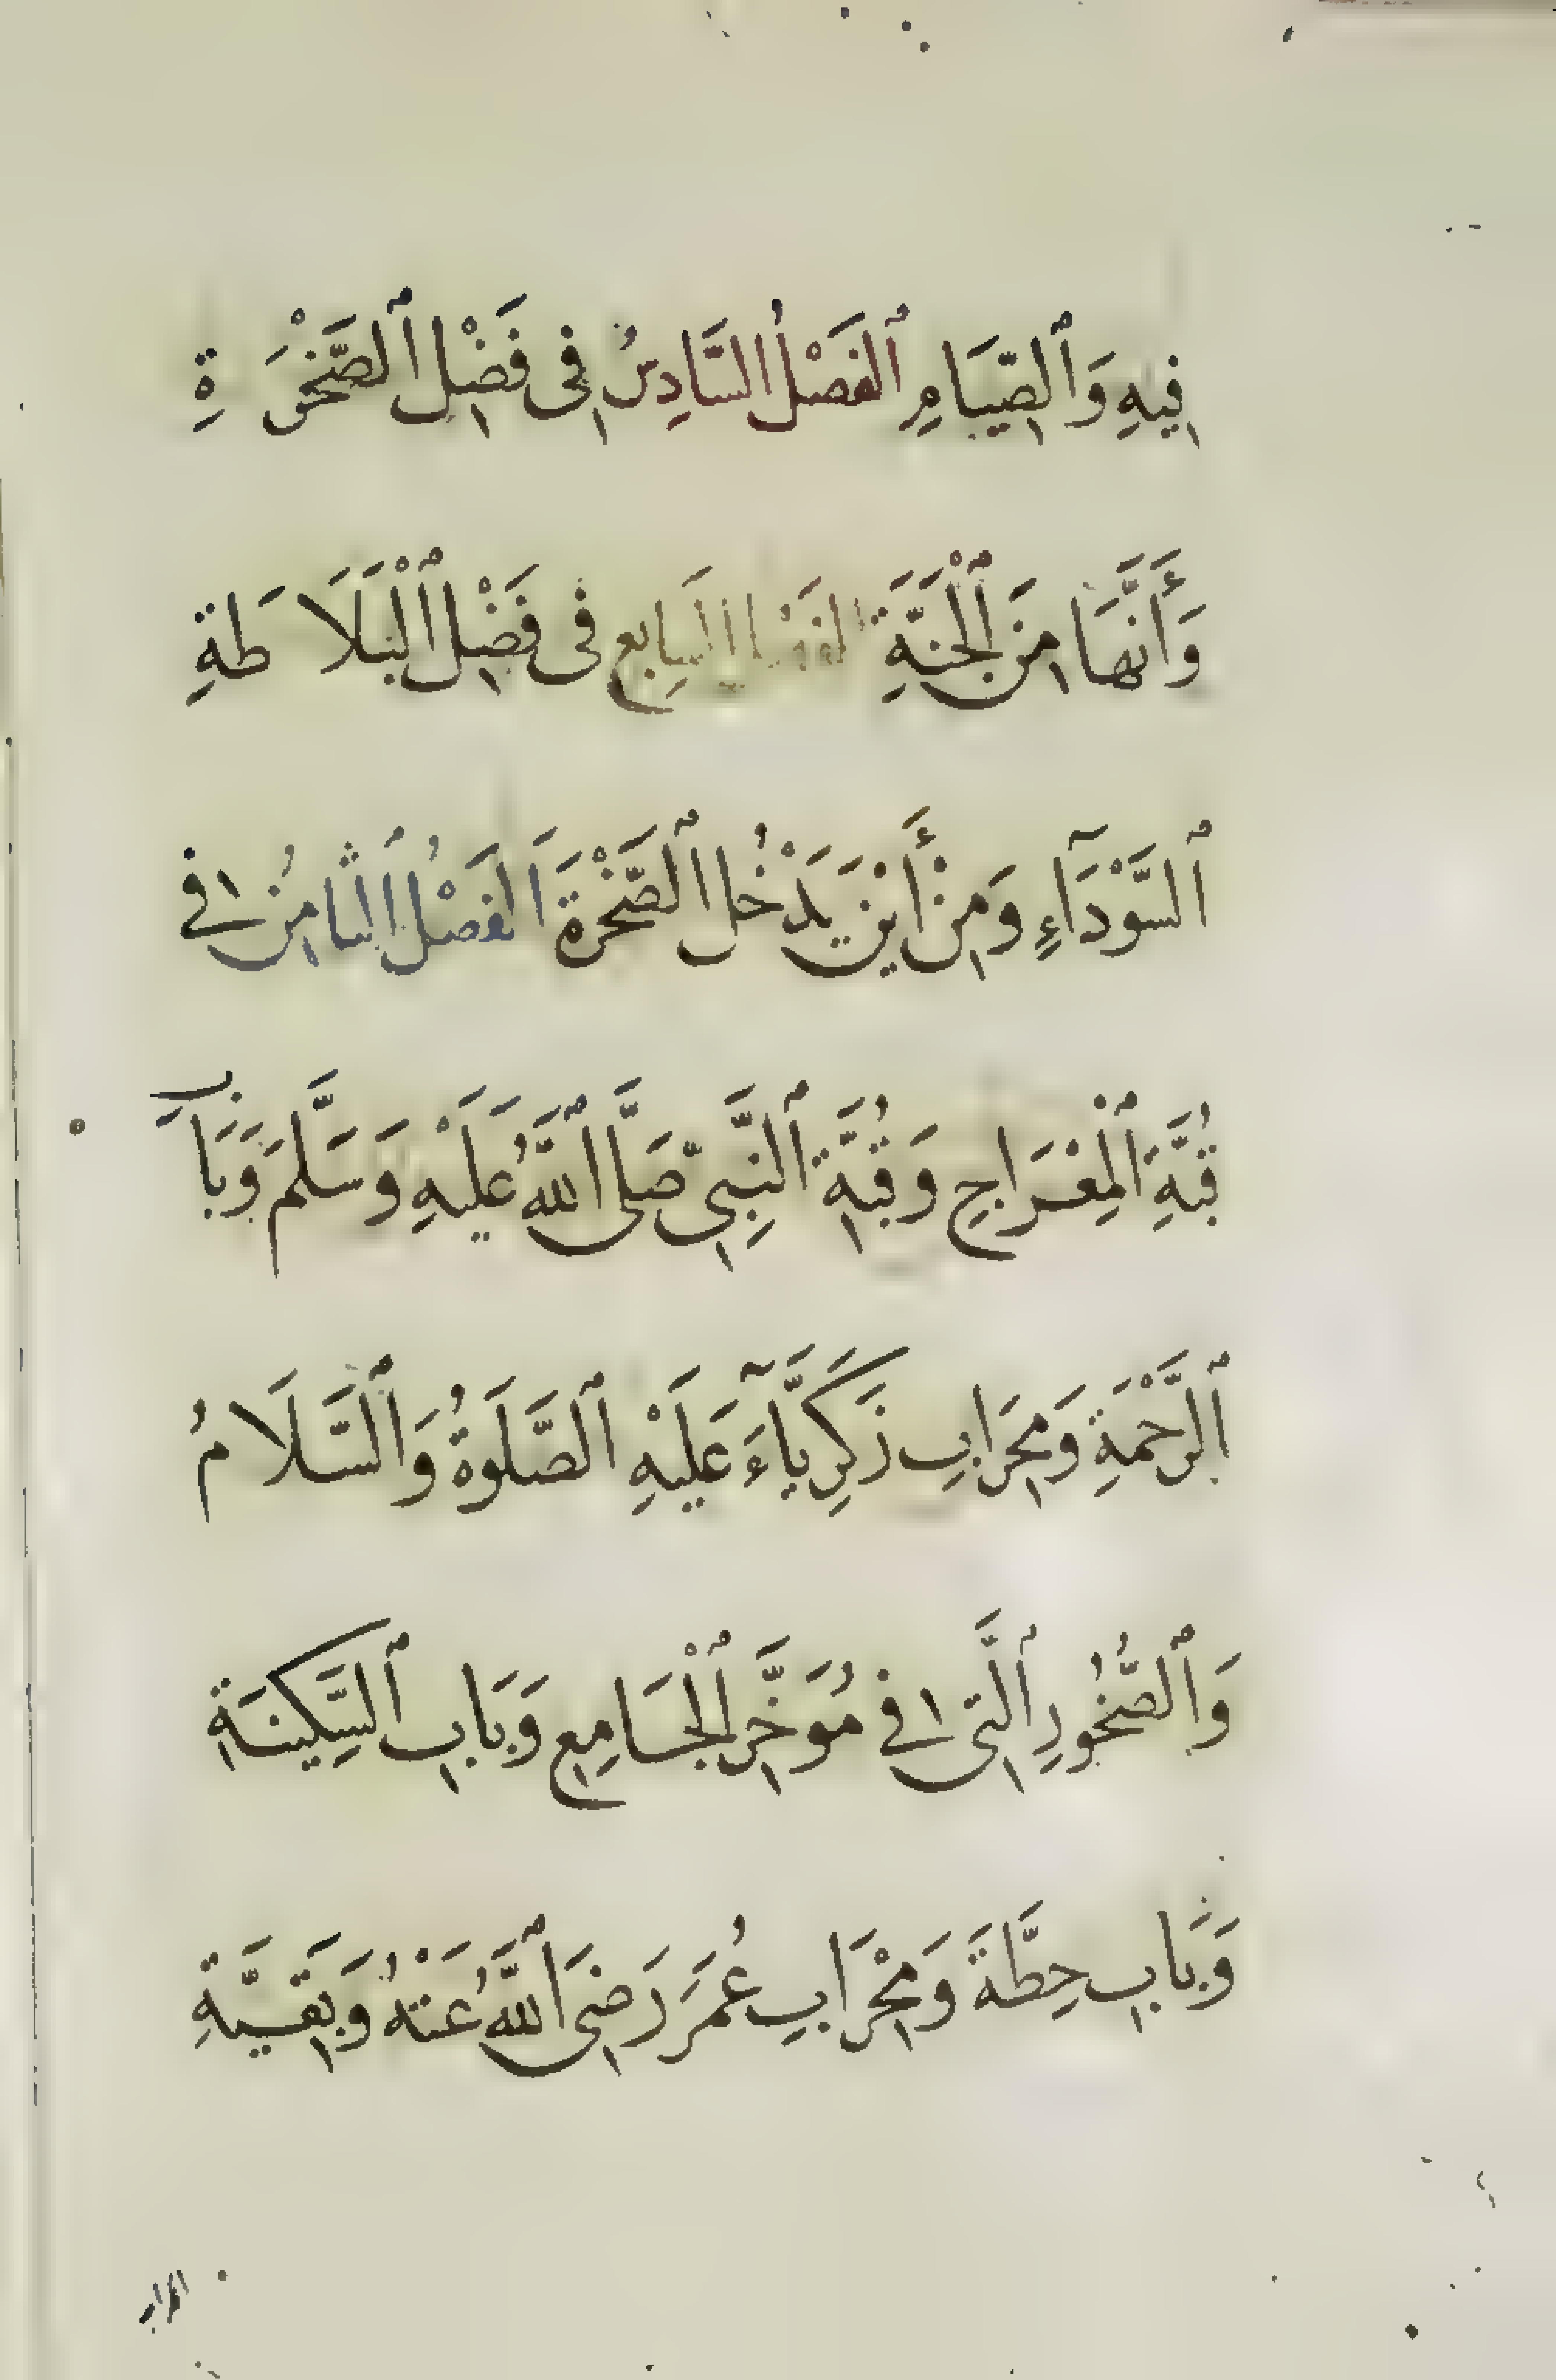 فِيهِ وَٱلصِّيَامِ ٱلفَصْلُ السَّادِسُ فِى فَضْلِ ٱلصَّخْرَةِ
وَأَنَّهَا مِنَ ٱلْجَنَّةِ الفَصْلُ السَّابِع فى فَضْلِ ٱلْبَلَاطَةِ
ٱلسَّوْدَآءِ وَمِنْ أَيْنَ يَدْخُل ٱلصَّخْرَةَ اَلفَصْلُ اَلثَّامِنُ فِى
قُبَّةِ ٱلْمِعْرَاجِ وَقُبَّةِ ٱلنَّبِىِّ صَلَّى ٱللَّهُ عَلَيْهِ وَسَلَّمَ وَبَابِ
ٱلرَّحْمَةِ وَمِحْرَابِ زَكَرِيَّآءَ عَلَيْهِ ٱلصَّلَوةُ وَٱلسَّلَامُ
وَٱلصُّخُورِ ٱلَّتِى فِى مُوَخَّرِ ٱلْجَامِعِ وَبَابِ ٱلسَّكِينَةِ
وَبَابِ حِطَّةَ وَمِحْرَابِ عُمَرَ رَضِىَ ٱللَّهُ عَنْهُ وَبَقِيَّةِ